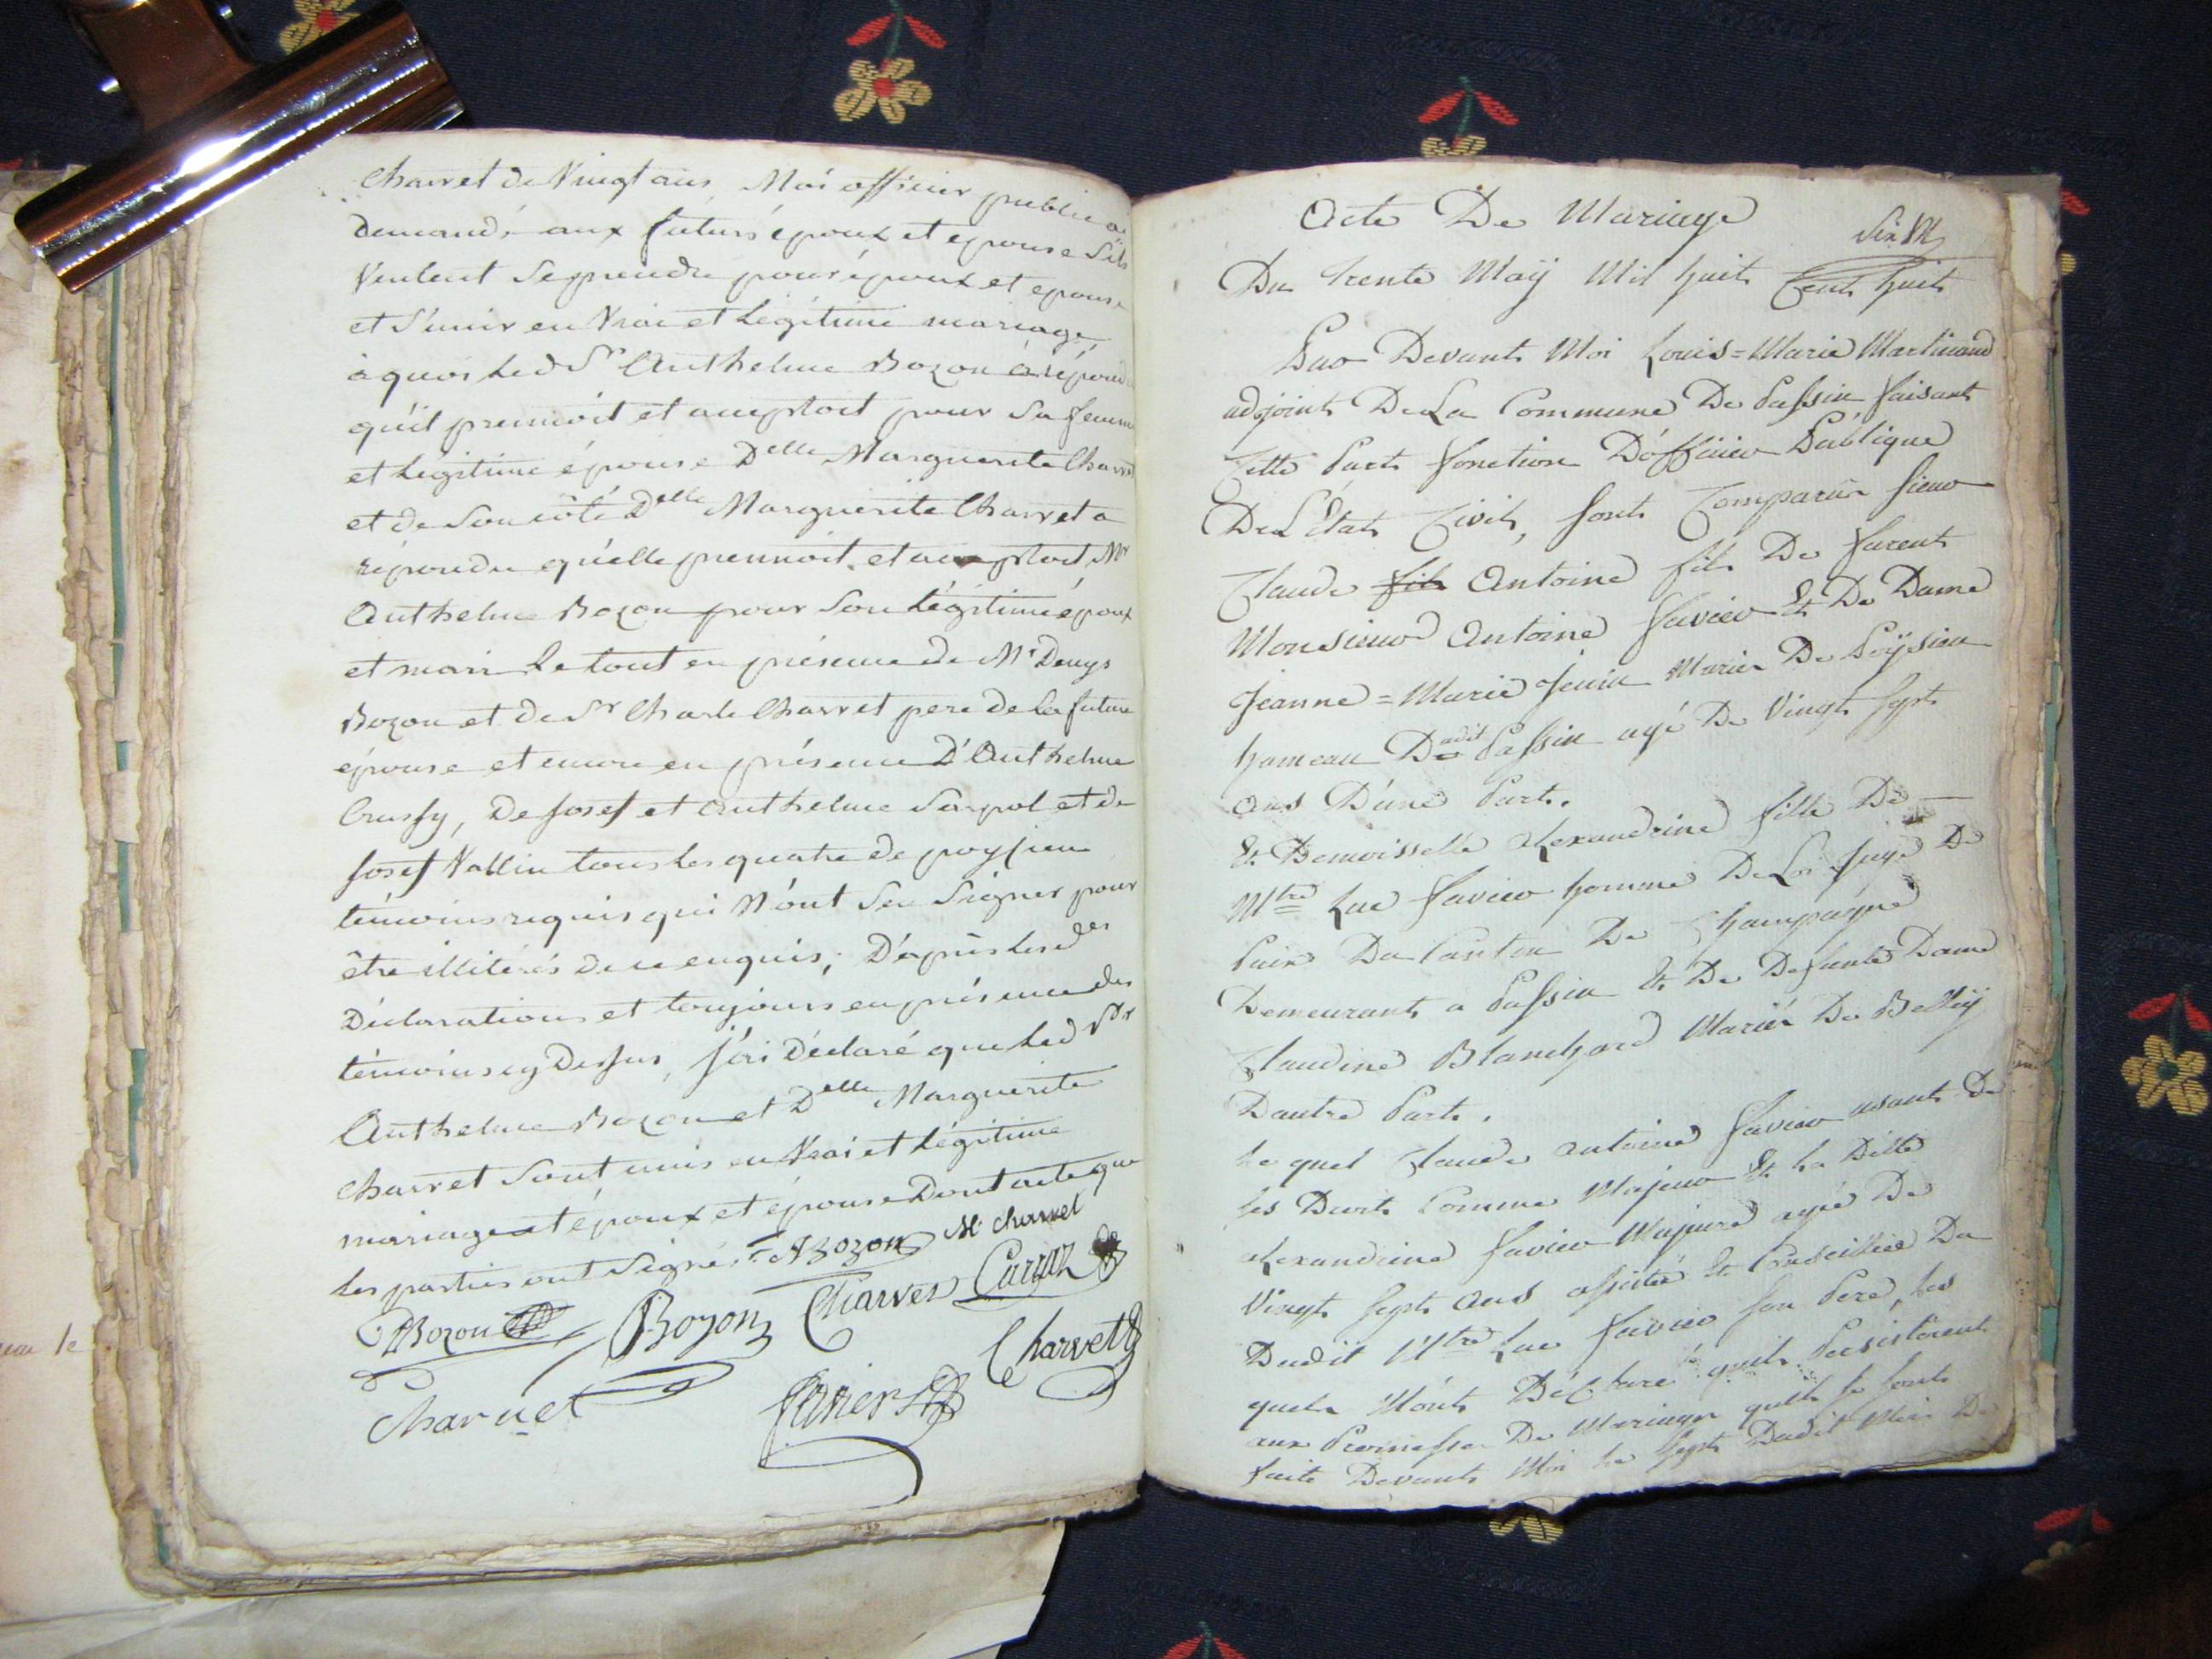 Charvet de Vingt ans, Moi officier public a
Demandé aux futurs époux et epouse S'ils
Veulent Se prendre pour époux et epouse
et S'unir en Vrai et Légitime mariage
a quoi Led Sr Anthelme Bozon à répondu
qu'il prennoit et acceptoit pour Sa femme
et Legitime épouse Delle Marguerite Charvet
et de Son côté Delle Marguerite Charvet a
répondu qu'elle prennoit et acceptoit Mr
Anthelme Bozon pour Son Légitime époux
et mari Le tout en présence de Mr Denys
Bozon et de Sr Charle Charvet pere de La future
épouse et encore en présence D'Anthelme
Crussy, De Josef et Anthelme Serpol et de
Josef Vallin tous les quatre de poysieu
témoins requis qui N'ont Seu Signer pour
être illiterés de ce enquis; D'après Lesdes
Déclarations et toujours en présence des
témoins cy Dessus, J'ai Déclaré que Led Sr
Anthelme Bozon et Delle Marguerite
Charvet Sont unis en Vrai et Légitime
mariage et époux et épouse Dont acte que
Les parties ont Signé. ABozon M charvet
Bozon Bozon Charvet
Charvet Charvet
Savier
Acte De Mariage
Du trente Maÿ Mil huit Cent huit
Par Devant Moi Louis=Marie Martinand
adjoint De La Commune De Passin faisant
Cette Part fonction D'officier Publique
De L'État Civil, Sont Comparûs Sieur
Claude fils Antoine fils De
Monsieur Antoine Savier Et De Dame
Jeanne=Marie Jenin Mariés De Poÿsieu
hameau Dudit Passin agé De Vingt Sept
ans D'une Part.
Et Demoisselle Alexandrine fille De
Mtre Luc Savier homme De Loi Juge De
Paix Du Canton De Champagne
Demeurant a Passin Et De Defunte Dame
Claudine Blanchard Mariés De Belleÿ
Dautre Part.
Le quel Claude Antoine Savier usant De
Ses Droits Comme Majeur Et La Ditte
Alexandrine Savier Majeure agée De
Vingt Sept ans assistée Et Conseillée Du
Dudit Mtre Luc Savier Son Pere, Les
quels M'ont Déclaré quils Persistoient
aux Promesses De Mariage quils Se Sont
faite Devant Moi Le Sept Dudit Mois De